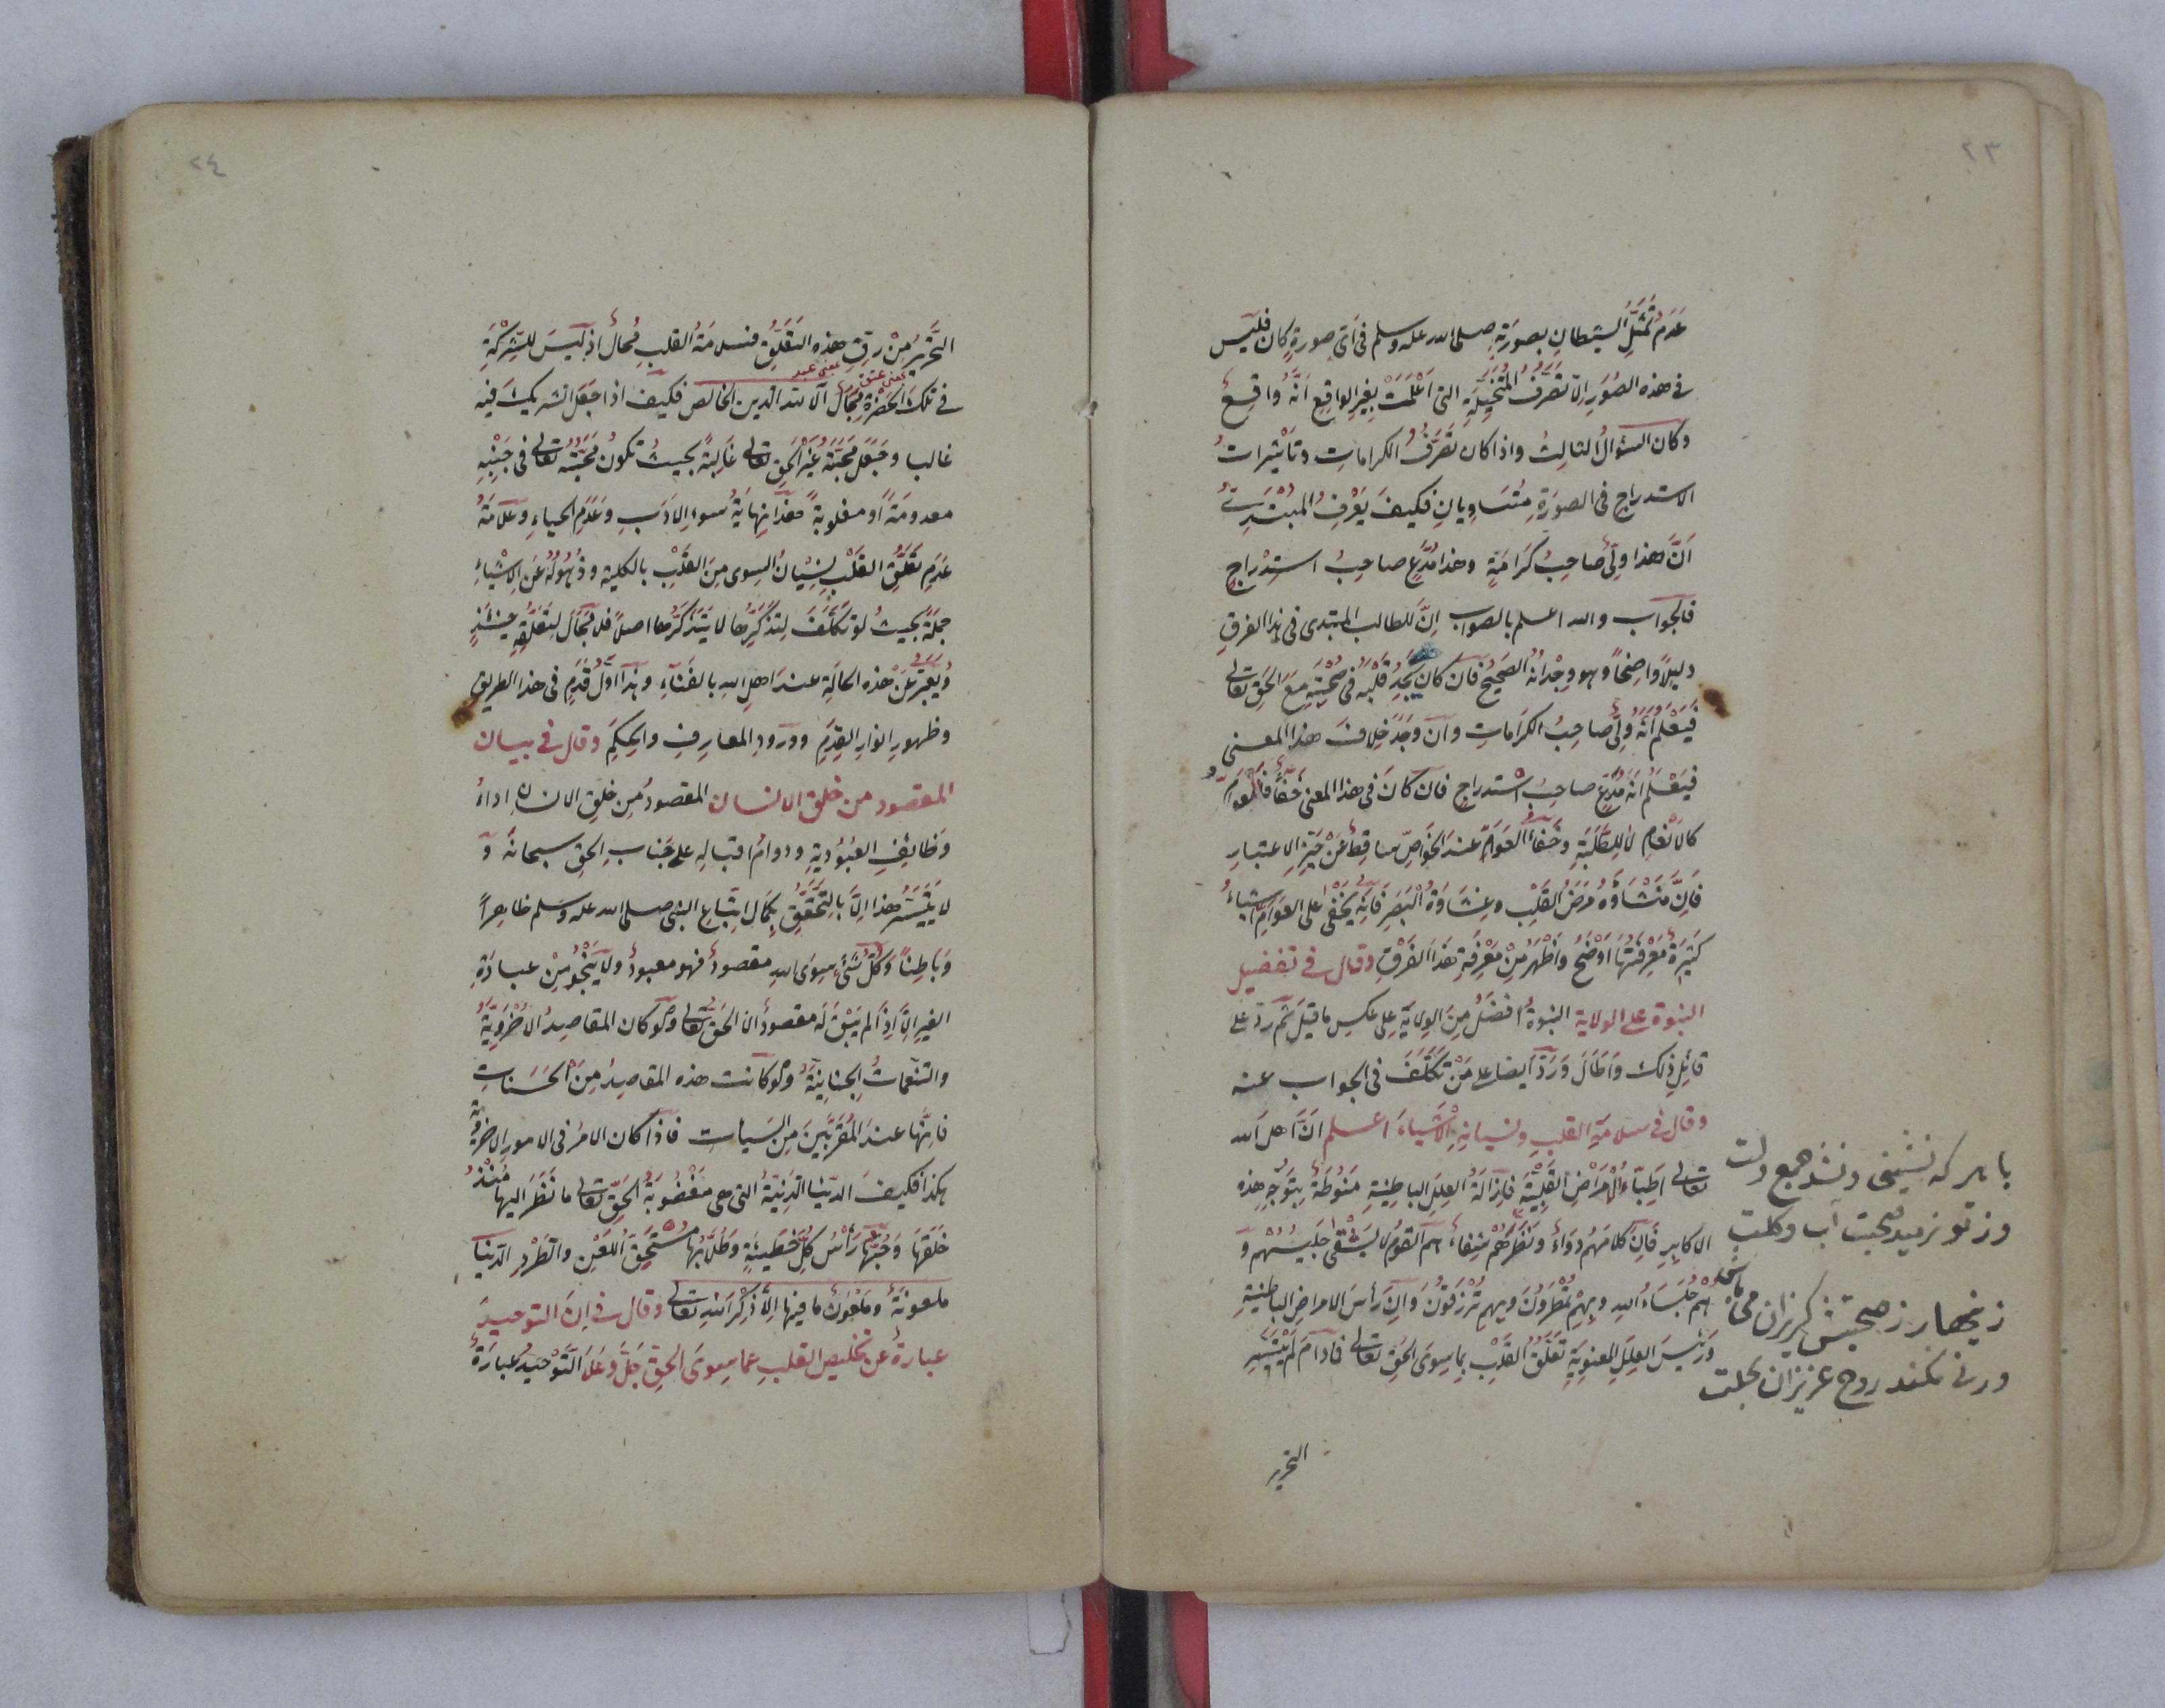 ٢٣
عَدَمُ تَمَثُّلِ الشيطانِ بصورَتِهِ صلى الله عليه وسلم فى اَىّ صورةٍ كان فليس
فى هذه الصُوَرِ اِلّا تَصَرُّفُ المُتَخَيِّلَةِ التى اَعْلَمَتْ بِغيرِ الواقِعِ اَنَّهُ واقِعٌ
وكان السؤالُ الثالِثُ واذا كان تَصَرُّفُ الكراماتِ وتأثيراتُ
الاستدراجِ فى الصورَةِ مُتَساوِيانِ فكيفَ يَعْرِفُ المُبْتَدِئُ
اَنَّ هذا ولىٌّ صاحِبُ كَرَامَةٍ وهذا مُدَّعٍ صاحِبُ استِدْراجٍ
فالجواب والله اعلم بالصواب اِنَّ للطالب المبتدى فى هذا الفرقِ
دليلاً واضِحاً وهو وِجْدانُهُ الصَحيحُ فَاِن كان يَجِدُ قَلْبَهُ فى صُحْبَتِهِ مَعَ الحَقِ تعالى
فَيَعْلَمُ اَنَّهُ ولىٌّ صاحِبُ الكَراماتِ واِن وَجَدَ خِلافَ هذا المعنى
فيَعْلَمُ انَّهُ مُدَّعٍ صاحِبُ استدراجٍ فاِن كانَ فى هذا المعنى خَفاءٌ فَلِلْعَوامِّ
كالاَنْعامِ لا لِلطَّلَبَةِ وخَفاءُ العَوَامِّ عندَ الخَواصِّ ساقِطٌ عَنْ حَيِّزِ الاعتبارِ
فَاِنَّ مَنْشَاؤُهُ مَرَضُ القَلْبِ وغِشاوَةُ البَصَرِ فَاِنَّهُ يَخْفى على العَوامِّ اشياءُ
كَثِيرَةٌ مَعْرِفَتُهَا اَوْضَحُ واَظْهَرُ مِنْ مَعْرِفَةِ هَذَا الفَرْقِ وقال فى تفضيل
النبوة على الولاية النبوةُ افضَلُ مِنَ الولايَةِ على عكسِ ما قيلَ ثُمَّ ردّ على
قائِلِ ذلك واَطالَ ورَدَّ ايضا على مَنْ تَكَلَّفَ فى الجواب عنه
وقال فى سلامةِ القلبِ ونسيانِهِ الاَشْيَاءَ اعلم اَنَّ اهلَ الله
تعالى اَطِبّاءُ الاَمْرَاضِ القَلْبِيَّةِ فاِزالَةُ العِلَلِ الباطِنِيّةِ مَنُوطَةٌ بِتَوَجُّهِ هذه
الاكابِرِ فَاِنَّ كلامَهُم دواءٌ ونَظَرَهُمْ شِفاءٌ هُم القومُ لا يَشْقى جَليسُهُمْ و
هُمْ جُلَسَاءُ اللهِ وبِهِمْ تُمْطَرُونَ وبِهِمْ تُرْزَقُونَ واِنَّ رأسَ الامراضِ الباطنيةِ
ورئيسَ العِلَلِ المعنوِيّةِ تَعَلُّقُ القَلْبِ بِما سِوَى الحَقِ تعالى فمادامَ لَمْ يَتَيَسَّرِ
التحرر
با هر که نشينى ونشد جمع دلت
وز تو نرميد صحبت آب وكلت
زينهار ز صحبتش گريزان مى باش
ورنه نكند روح عزيزان بحلت
٢٤
التحَرُّرُ مِنْ رِقِّ هذه التَعَلُّقِ فسلامَةُ القلبِ مُحالٌ اذ لَيسَ للشِركَةِ
فى تلكَ الحَضْرَةِ مَجالٌ اَلا للهِ الدين الخالص فكيفَ اذا جَعَلَ الشريكَ فيه
غالبا وجَعَلَ مَحَبَّةَ غَيْرِ الحَقِ تعالى غَالِبَةً بحيثُ تكونُ مَحَبَّتُهُ تعالى فى جَنْبِهِ
معدومَةً او مغلوبةً فهذا نِهايَةُ سوءِ الاَدَبِ وعَدَمِ الحياءِ وعلامَةُ
عَدَمِ تَعَلُّقِ القَلْبِ نِسْيانُ السِوى مِنَ القَلْبِ بالكليةِ وذُهولُهُ عَنِ الاشياءِ
جملةً بحيثُ لو تَكَلَّفَ لِتَذَكُّرِها لا يَتَذَكَّرُها اصلاً فلا مَجالَ لِتَعَلُّقِهِ حينئذٍ
ويُعَبَّرُ عَنْ هذه الحالَةِ عندَ اهلِ اللهِ بالفَنَآءِ وهذا اوّلُ قَدَمٍ فى هذا الطريقِ
وظهورِ انوارِ القِدَمِ وورودِ المعارِفِ والحِكَمِ وقال فى بيان
المقصود من خلق الانسان المقصودُ مِن خلقِ الانسانِ اداءُ
وظائِفِ العُبُودِيةِ ودوامُ اقبالِهِ على جَنابِ الحِقِ سبحانه و
لا يَتَيَسَّرُ هذا اِلاّ بِالتَّحَقُّقِ بِكمالِ اتِّباعِ النبىِ صلى الله عليه وسلم ظاهِراً
وباطِناً وكُلُّ شَئٍ سِوَى اللهِ مقصودٌ فهو معبودٌ ولا يَنْجُو مِنْ عبادَةِ
الغيرِ اِلاّ اِذا لم يَبْقَ لَهُ مقصودٌ الا الحَقُ تعالى ولو كان المقاصِدُ الاُخْرَوِيَّةُ
والتنعماتُ الجِنانِيَّةُ ولو كانت هذه المقاصِدُ مِنَ الحَسَناتِ
فاِنَّها عندَ المُقَرَّبِينَ مِنَ السَيآتِ فاذا كان الامرُ فى الامورِ الاخرويةِ
هكذا فكيفَ الدّنيا الدَنِيَّةُ التى هى مَغْضُوبَةُ الحَقِّ تعالى ما نَظَرَ اليها مُنْذُ
خَلَقَها وحُبُّها رأسُ كلِّ خَطيئَةٍ وطُلّابُها مُسْتَحِقُّ اللَّعْنِ والطَرْدِ الدنيا
ملعونَةٌ وملعونٌ ما فيها اِلاّ ذِكْرَ اللهِ تعالى وقال فى اِنَّ التوحيدَ
عبارةٌ عَن تخليصِ القلبِ عَمّا سِوَى الحقّ جَلَّ وعَلا التَّوْحيدُ عبارَةٌ